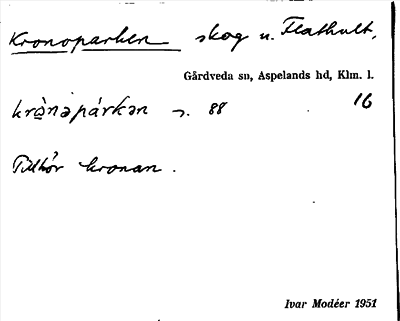 Kronoparken skog u. Flathult,
Gårdveda sn, Aspelands hd, Klm. l.
krò̱nəpárkən 88 16
Tillhör kronan.
Ivar Modéer 1951